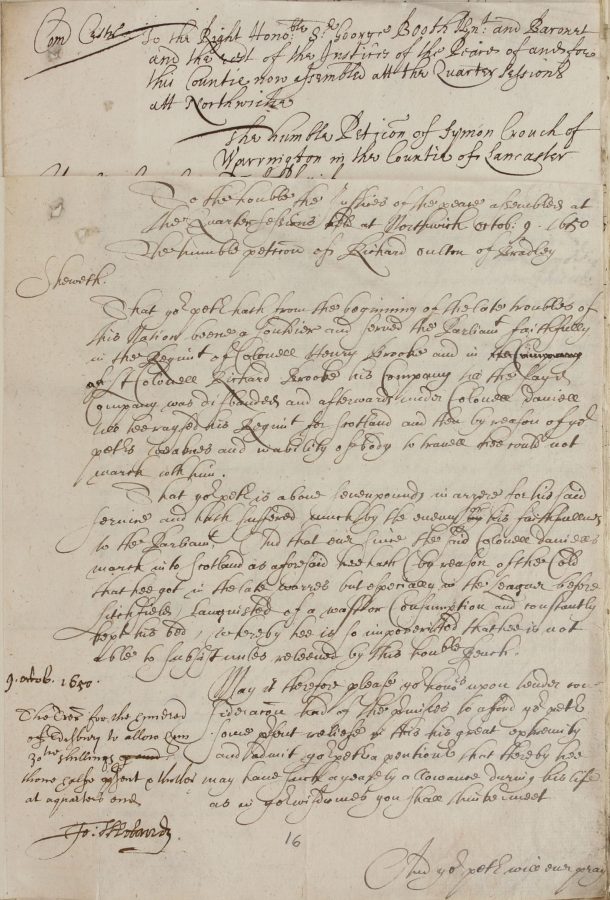 Com Cestr
To the Right Honoble Sr George Booth Knt: and Baronet
and the rest of the Justices of the Peace of and for
this Countie now assembled att the Quarter Sessions
att Northwiche
The humble Peticon of Symon Crouch of
Warrington in the Countie of Lancaster
To the honble the Justices of the peace assembled at
the Quarter sessions held at Northwich Octob: 9. 1650
The humble peticon of Richard Oulton of Bradley
Sheweth.
That yor petr hath from the beginning of the late troubles of
this Nation beene a souldier and served the Parliamt faithfully
in the Regimt of Colonell Henry Brooke and in the Company
of Lt Colonell Richard Brooke his Company till the sayd
Company was disbanded and afterwards under Colonell Daniell
who raysed his Regimt for Scotland and then by reason of yor
petrs weaknes and inability of body to travell hee could not
march with him.
That yor petr is above seven pounds in arrere for his said
service and hath suffered much by the enemy for his faithfullnes
to the Parliamt. And that ever since the said Colonell Daniells
march into Scotland as aforesaid hee hath (by reason of the Cold
that hee got in the late warres but especially in the Leaguer before
Litchfield) languished of a wast or Consumption and constantly
kept his bed, whereby hee is so impoverished that hee is not
able to subsist unles releeved by this honoble Bench.
May it therefore please yor honrs upon tender con=
sideracon had of the premises to afford yor petr
some present releife in this his great extremity
and admit yor petr a pentioner that thereby hee
may have such a yearely allowance during his life
as in yor wisdomes you shall thinke meet
And yor petr will ever pray
9. octob. 1650.
The Trer for the hundred
of Edisbury to allow him
30tie shillings
thone halfe psent & thother
at a quarters end
16